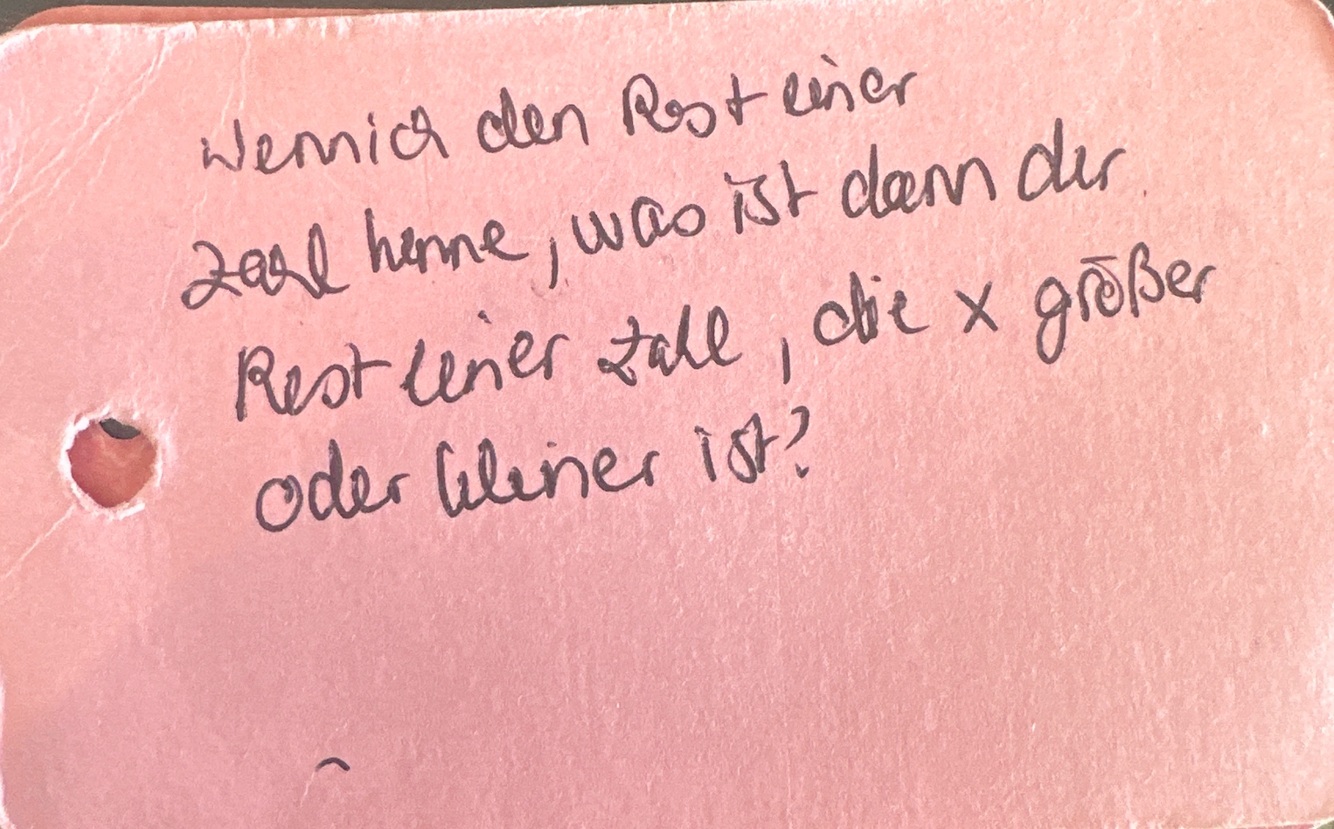 Wenn ich den Rest einer
Zahl kenne, was ist dann der
Rest einer Zahl, die x größer
oder kleiner ist?